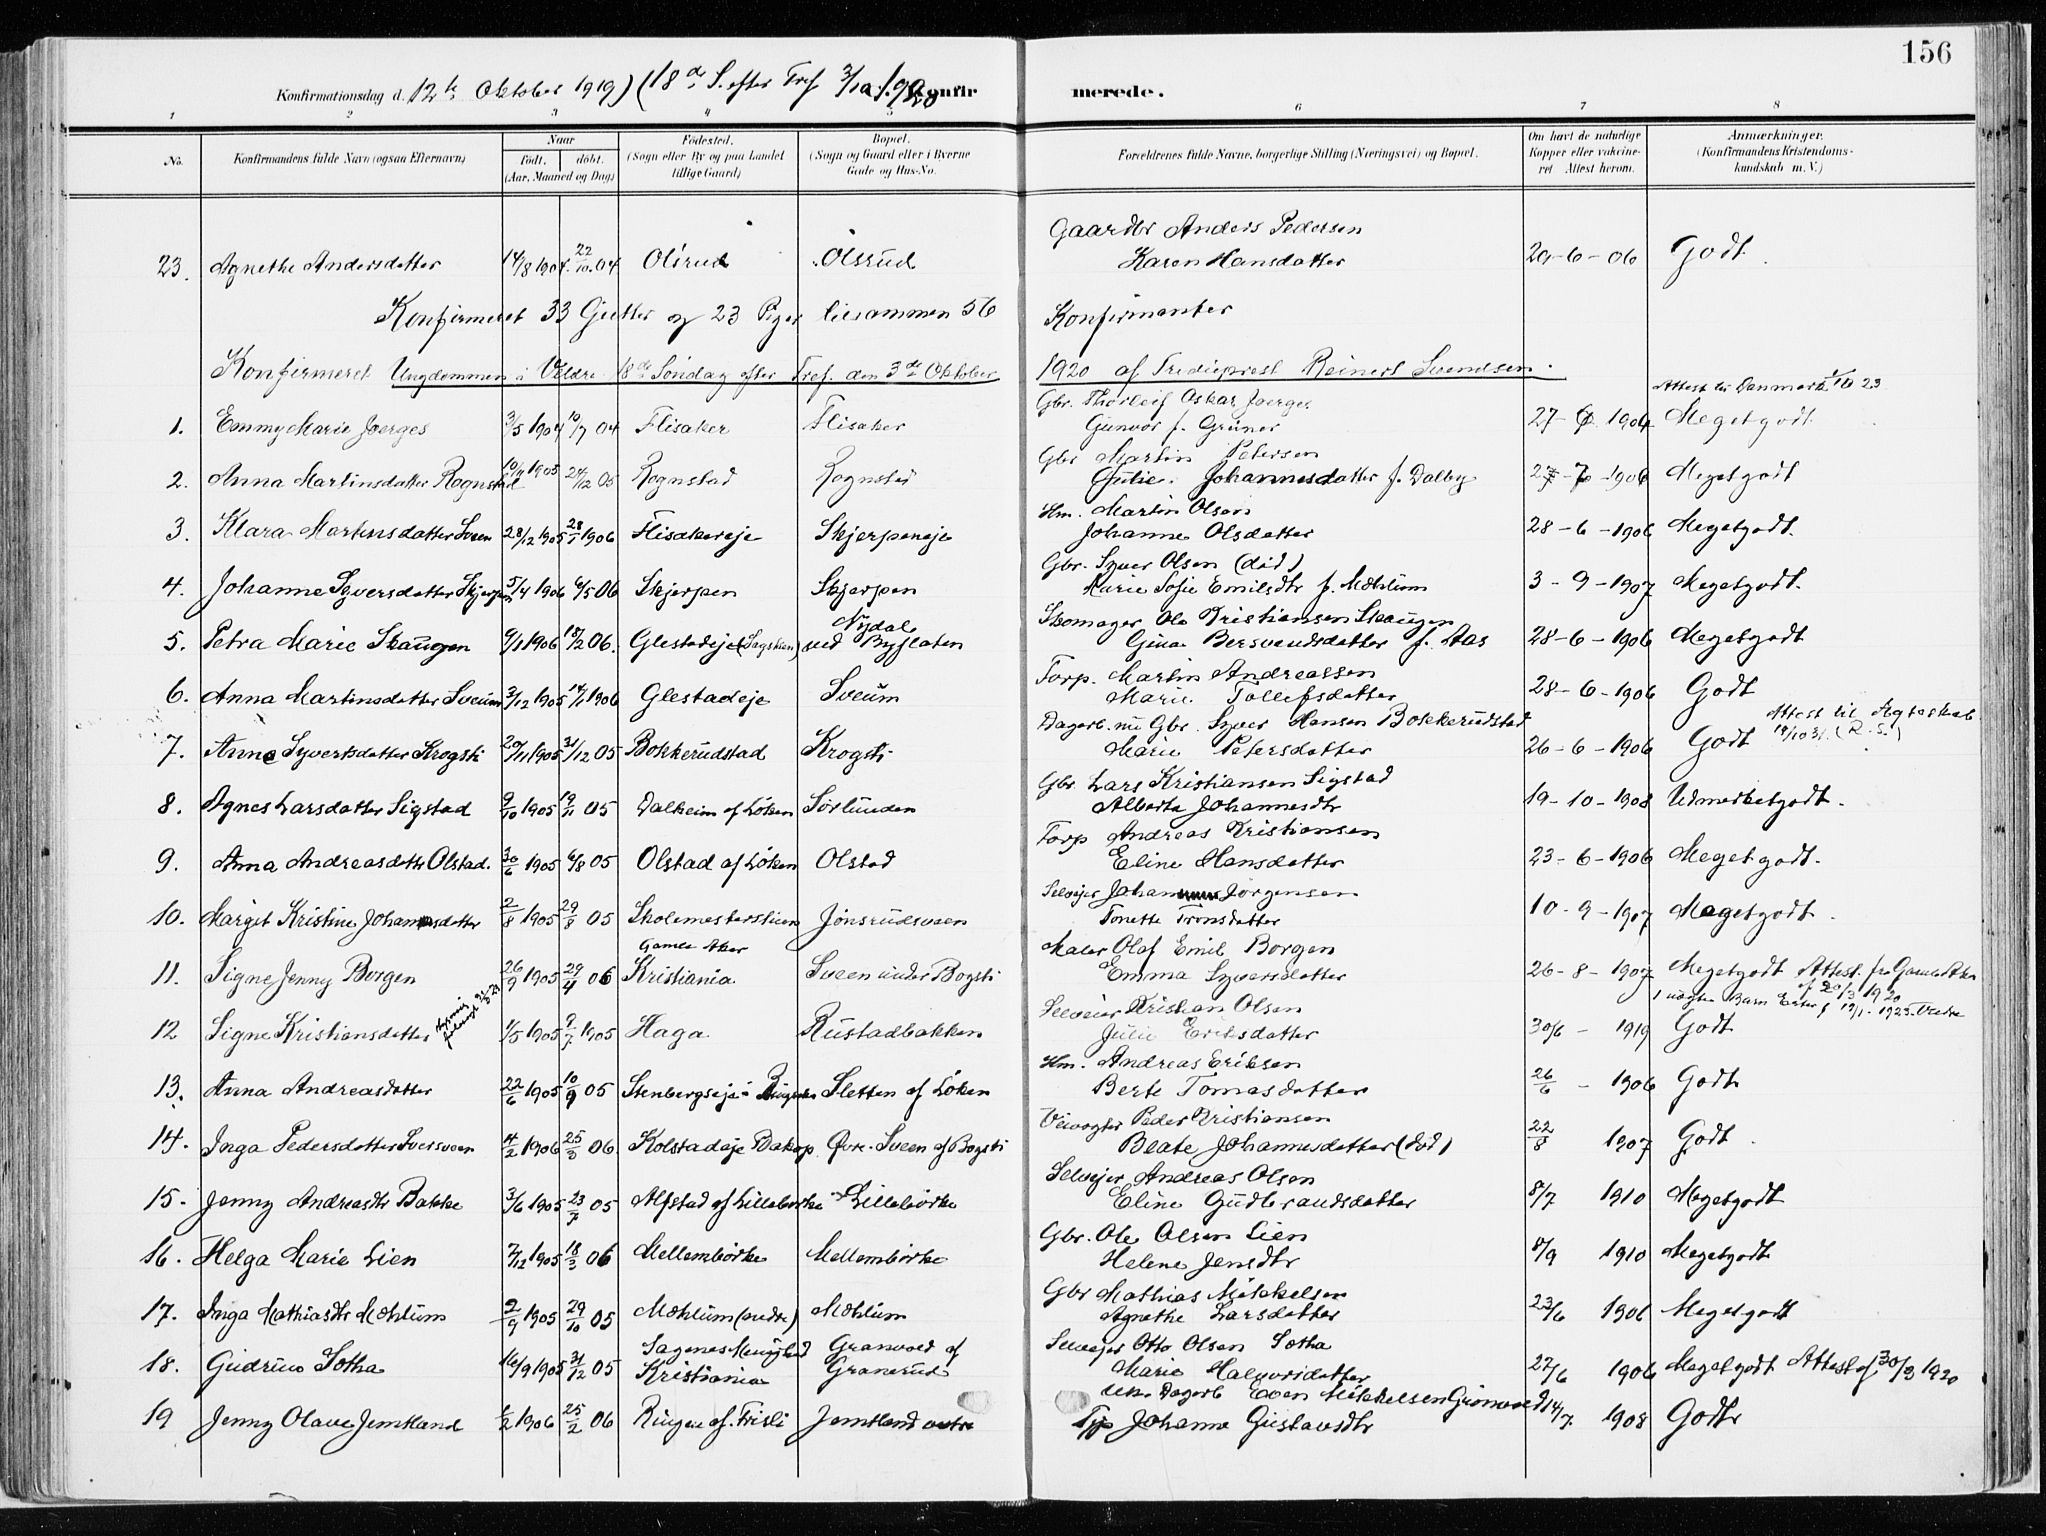 156
Konfirmationsdag d. 12te Oktober 1919) (18de S. efter Tref 3/10 1920 Konfirmerede.
1 2 3 4 5 6 7 8
No. Konfirmandens fulde Navn (ogsaa Efternavn) Naar født. døbt. (Aar, Maaned og Dag) Fødested. (Sogn eller By og paa Landet tillige Gaard) Bopæl. (Sogn og Gaard eller i Byerne Gade og Hus-No. Forældrenes fulde Navne, borgerlige Stilling (Næringsvei) og Bopæl. Om havt de naturlige Kopper eller vakcineret Attest herom. Anmærkninger. (Konfirmandens Kristendomskundskab m. V.)
Gaardbr Anders Pedersen
23. Agnethe Andersdatter 14/8 1904. 22/10 04 Olsrud Olsrud Karen Hansdatter 20-6-06 Godt.
Konfirmeret 33 Gutter og 23 Piger tilsammen 56 Konfirmanter
Konfirmeret Ungdommen i Veldre 18de Søndag efter Tref. den 3de Oktober 1920 af Tredieprest Reinert Svendsen.
Gbr. Thorleif Oskar Joerges Attest til Danmark 23
1. Emmy Marie Joerges 3/5 1904 10/7 04 Flisaker Flisaker Gunvor f. Grüner 27- 1904 Megetgodt.
Gbr Martin Petersen
2. Anna Martinsdatter Rognstad 10/11 1905 24/12 05 Rognstad Rognstad Julie Johannesdatter f. Dalby 27-7-1906 Megetgodt
Hm. Martin Olsen
3. Klara Martinsdatter Sveen 28/12 1905 28/1 1906 Flisakereje Skjerpeneje Johanne Olsdatter 28-6-1906 Megetgodt.
Gbr. Syver Olsen (död)
4. Johanne Syversdatter Skjerpen 5/4 1906 6/5 06 Skjerpen Skjerpen Marie Sofie Emilsdtr f. Mæhlum 3-9-1907 Megetgodt.
Skomager Ole Kristiansen Skaugen
5. Petra Marie Skaugen 6/1 1906 18/2 06. Glestadeje (Sagstuen) Nydal ved Byflaten Gina Bersvendsdatter f. Aas 28-6-1906 Megetgodt
Torp. Martin Andreassen
6. Anna Martinsdatter Sveum 3/12 1905 14/1 1906 Glestadeje Sveum Marie Tollefsdatter 28-6-1906 Godt
Dagarb. nu Gbr. Syver Hansen Bokkerudstad Attest til Ægteskab
7. Anna Syvertsdatter Krogsti 20/11 1905 31/12 05 Bokkerudstad Krogsti Marie Petersdatter 26-6-1906 Godt 19/10 31. (R.S.)
Gbr. Lars Kristiansen Sigstad
8. Agnes Larsdatter Sigstad 9/10 1905 19/11 05 Dalheim af Løken Sørlunden Alberte Johannesdtr 19-10-1908 Udmerketgodt.
Torp Andreas Kristiansen
9. Anna Andreasdatter Olstad. 30/6 1905 6/8 05 Olstad af Løken Olstad Eline Hansdatter 23-6-1906 Megetgodt.
Selveier Johan Jørgensen
10. Margit Kristine Johansdatter 2/8 1905 29/8 05 Skolemesterstuen Jönsrudsveen Tonette Tronsdatter 10-9-1907 Megetgodt.
Maler Olaf Emil Borgen
11. Signe Jenny Borgen 26/9 1905 29/4 06 Gamle Aker Kristiania Sveen under Bogsti Emma Syversdatter 26-8-1907 Megetgodt Attest. fra Gamle Aker af 20/3 1920
Selveier Kristian Olsen
12 Signe Kristiansdatter 1/5 1905 9/7 1905 Haga Rustadbakken Julie Eriksdatter 30/6 - 1919 Godt
Hm. Andreas Eriksen
13. Anna Andreasdatter 22/6 1905 10/9 05 Stenbergseje i Ringsaker Sletten af Löken Berte Tomasdatter 26/6 - 1906 Godt
Veivogter Peder Kristiansen
14. Inga Pedersdatter Sversveen 4/2 1906 25/3 06. Kolstadeje Bakop. Øvre-Sveen af Bogsti Beate Johannesdatter (död) 22/8 1907 Godt.
Selveier Andreas Olsen
15. Jenny Andreasdtr Bakke 3/6 1905 23/7 05 Alfstad af Lillebørke Lillebørke Eline Gudbrandsdatter 8/7 1910 Megetgodt
Gbr. Ole Olsen Lien
16. Helga Marie Lien 7/12 1905 18/2 06 Mellembørke Mellembørke Helene Jensdtr 8/9 1910 Megetgodt
Gbr Mathias Mikkelsen
17. Inga Mathiasdtr Mæhlum 2/9 1905 29/10 05 Mæhlum (nedre) Mæhlum Agnethe Larsdatter 23/6 1906 Megetgodt
Selveier Otto Olsen Sotha
18. Gudrun Sotha 16/9 1905 31/12 05 Sagenes Menighed Kristiania Granvold af Granerud Marie Halvorsdatter 27/6 1906 Megetgodt Attest af 30/3 1920
Uæ. Dagarb Even Mikkelsen
19 Jenny Olave Jemtland 1/2 1906 25/2 06 Ringen af. Frisli Jemtland østre Johanne Gustavsdtr 14/7. 1908 Godt